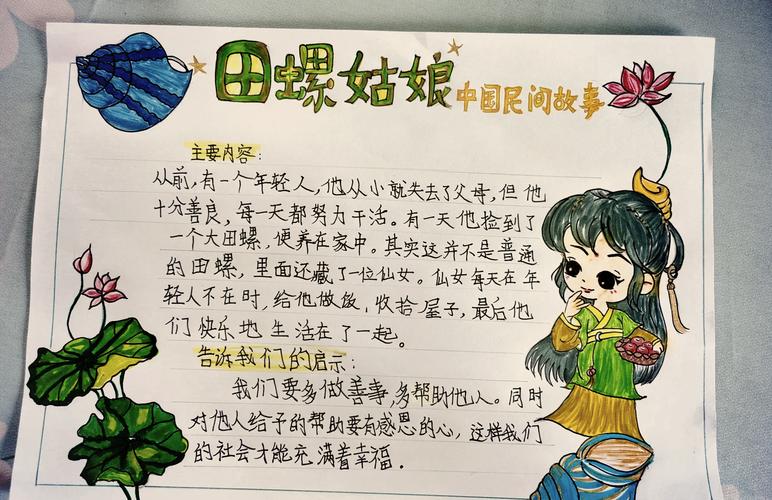 田螺姑娘
中国民间故事
主要内容:
从前,有一个年轻人,他从小就失去了父母,但他
十分善良,每一天都努力干活。有一天他捡到了
一个大田螺,便养在家中。其实这并不是普通
的田螺,里面还藏了一位仙女。仙女每天在年
轻人不在时,给他做饭,收拾屋子,最后他
们快乐地生活在了一起。
告诉我们的启示:
我们要多做善事,多帮助他人。同时
对他人给予的帮助要有感恩的心,这样我们
的社会才能充满着幸福.